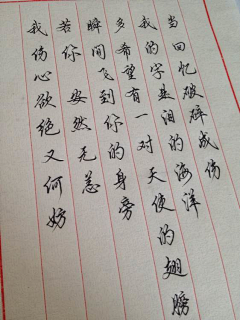 当回忆破碎成伤
我的字是泪的海洋
多希望有一对天使的翅膀
瞬间飞到你的身旁
若你安然无恙
我伤心欲绝又何妨